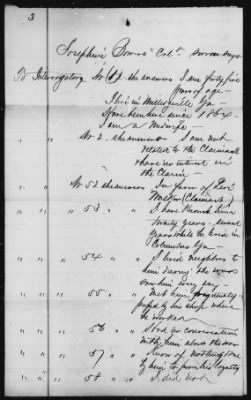 3
Josephine Col^d sworn says
To Interrogatory No 1 she answers I am forty five
years of age -
I live in Ga -
have been here since 1864 -
I am a Midwife -
No 2. she answers I am not
related to the Claimant
& have no interest in
the Claim -
No 52 she answers In favor of Levi
(Claimant)
" " 53 " I have known him
twenty years - several
years while he lived in
Columbus Ga -
" " 54 " I lived neighbors to
him during the war &
saw him every day -
" " 55 " Met him frequently
passed by his shop where
he worked
" " 56 " I had no conversation
with him about the war
" " 57 " Know of nothing done
by him to prove his loyalty
" " 58 " I did not